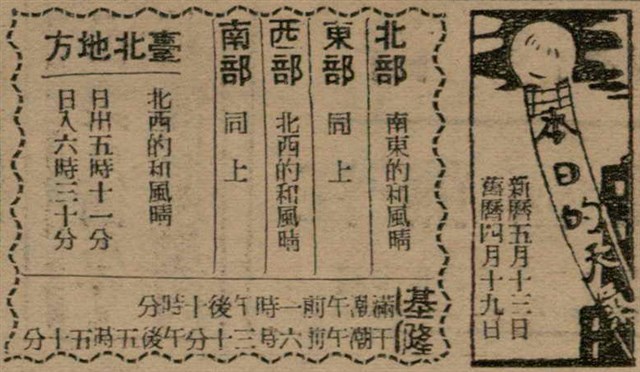 本日的天
新曆五月十三日
舊曆四月十九日
北部
南東的和風晴
東部
同上
西部
北西的和風晴
南部
同上
臺北地方
北西的和風晴
日出五時十一分
日入六時三十分
基隆
滿潮午前一時午後十時分
干潮午前六時三十分午後五時五十分